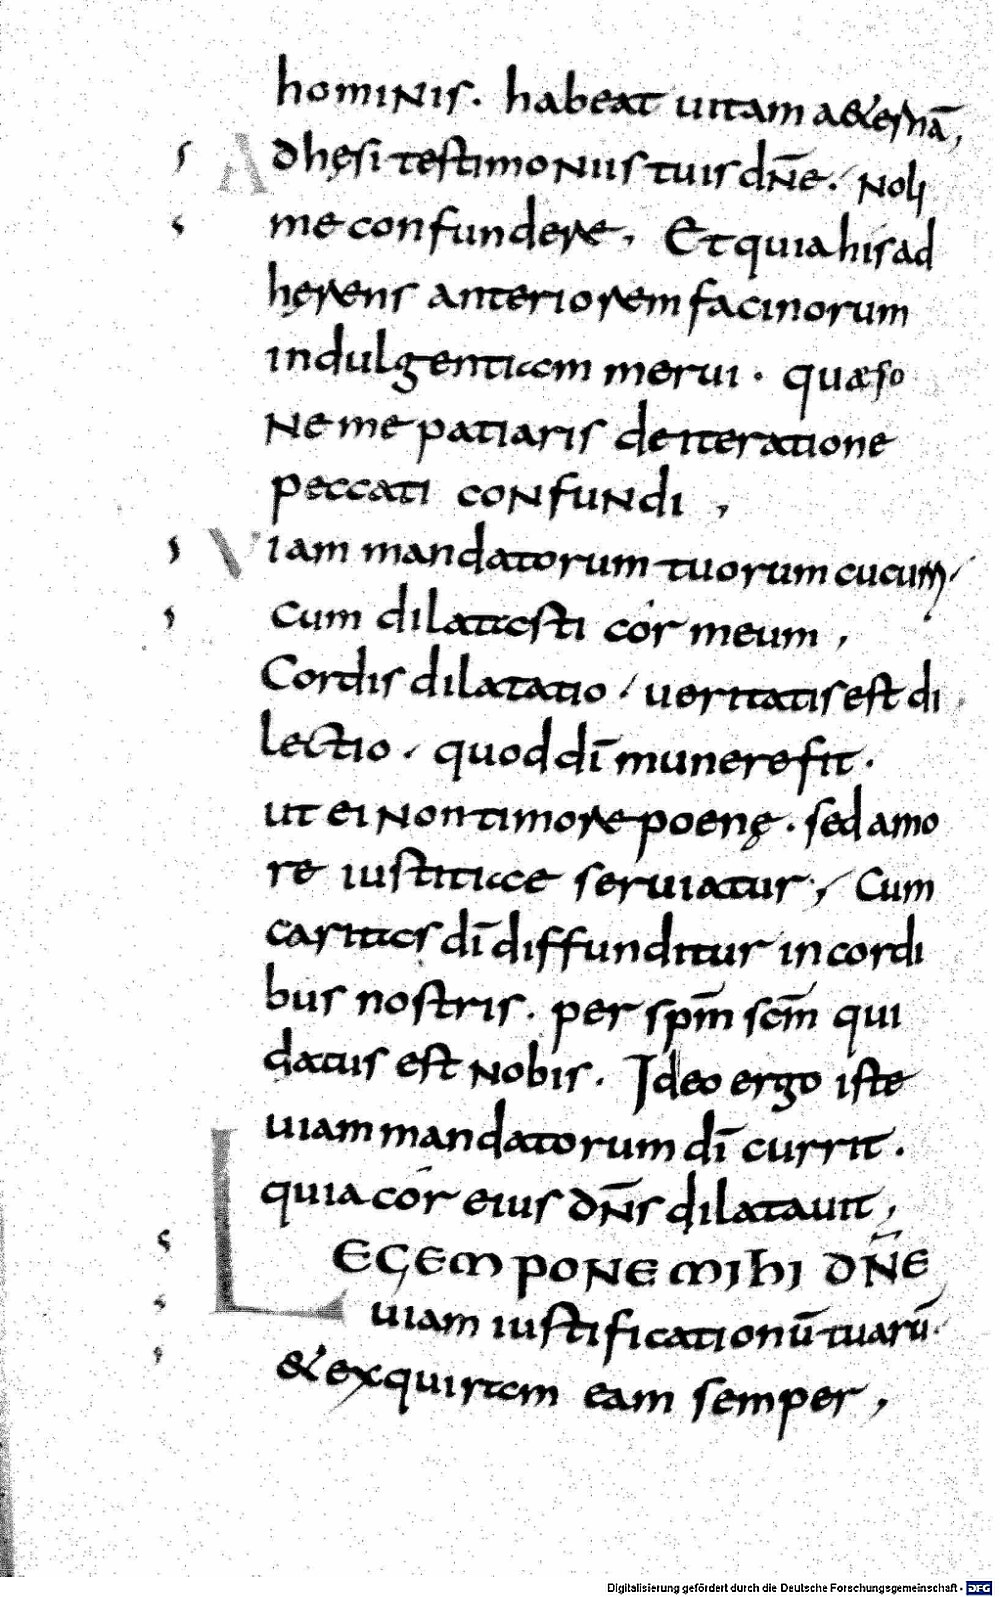 hominis. habeat uitam a&ernā,
Adhęsi testimoniis tuis dn̄e. Noli
me confundere, Et quia his ad
hęrens anteriorem facinorum
indulgentiam merui. quæso
Ne me patiaris de iteratione
peccati confundi,
Viam mandatorum tuorum cucurri.
Cum dilatasti cor meum,
Cordis dilatatio. ueritatis est di
lectio. quod dī munere fit.
ut ei non timore poenę. sed amo
re iustitiae seruiatur, Cum
caritas dī diffunditur in cordi
bus nostris. per spm̄ scm̄ qui
datus est nobis. Ideo ergo iste
uiam mandatorum dī currit.
quia cor eius dn̄s dilatauit,
LEGEM PONE MIHI DN̄E
uiam iustificationū tuarū.
& exquiram eam semper,
Digitalisierung gefördert durch die Deutsche Forschungsgemeinschaft - DFG